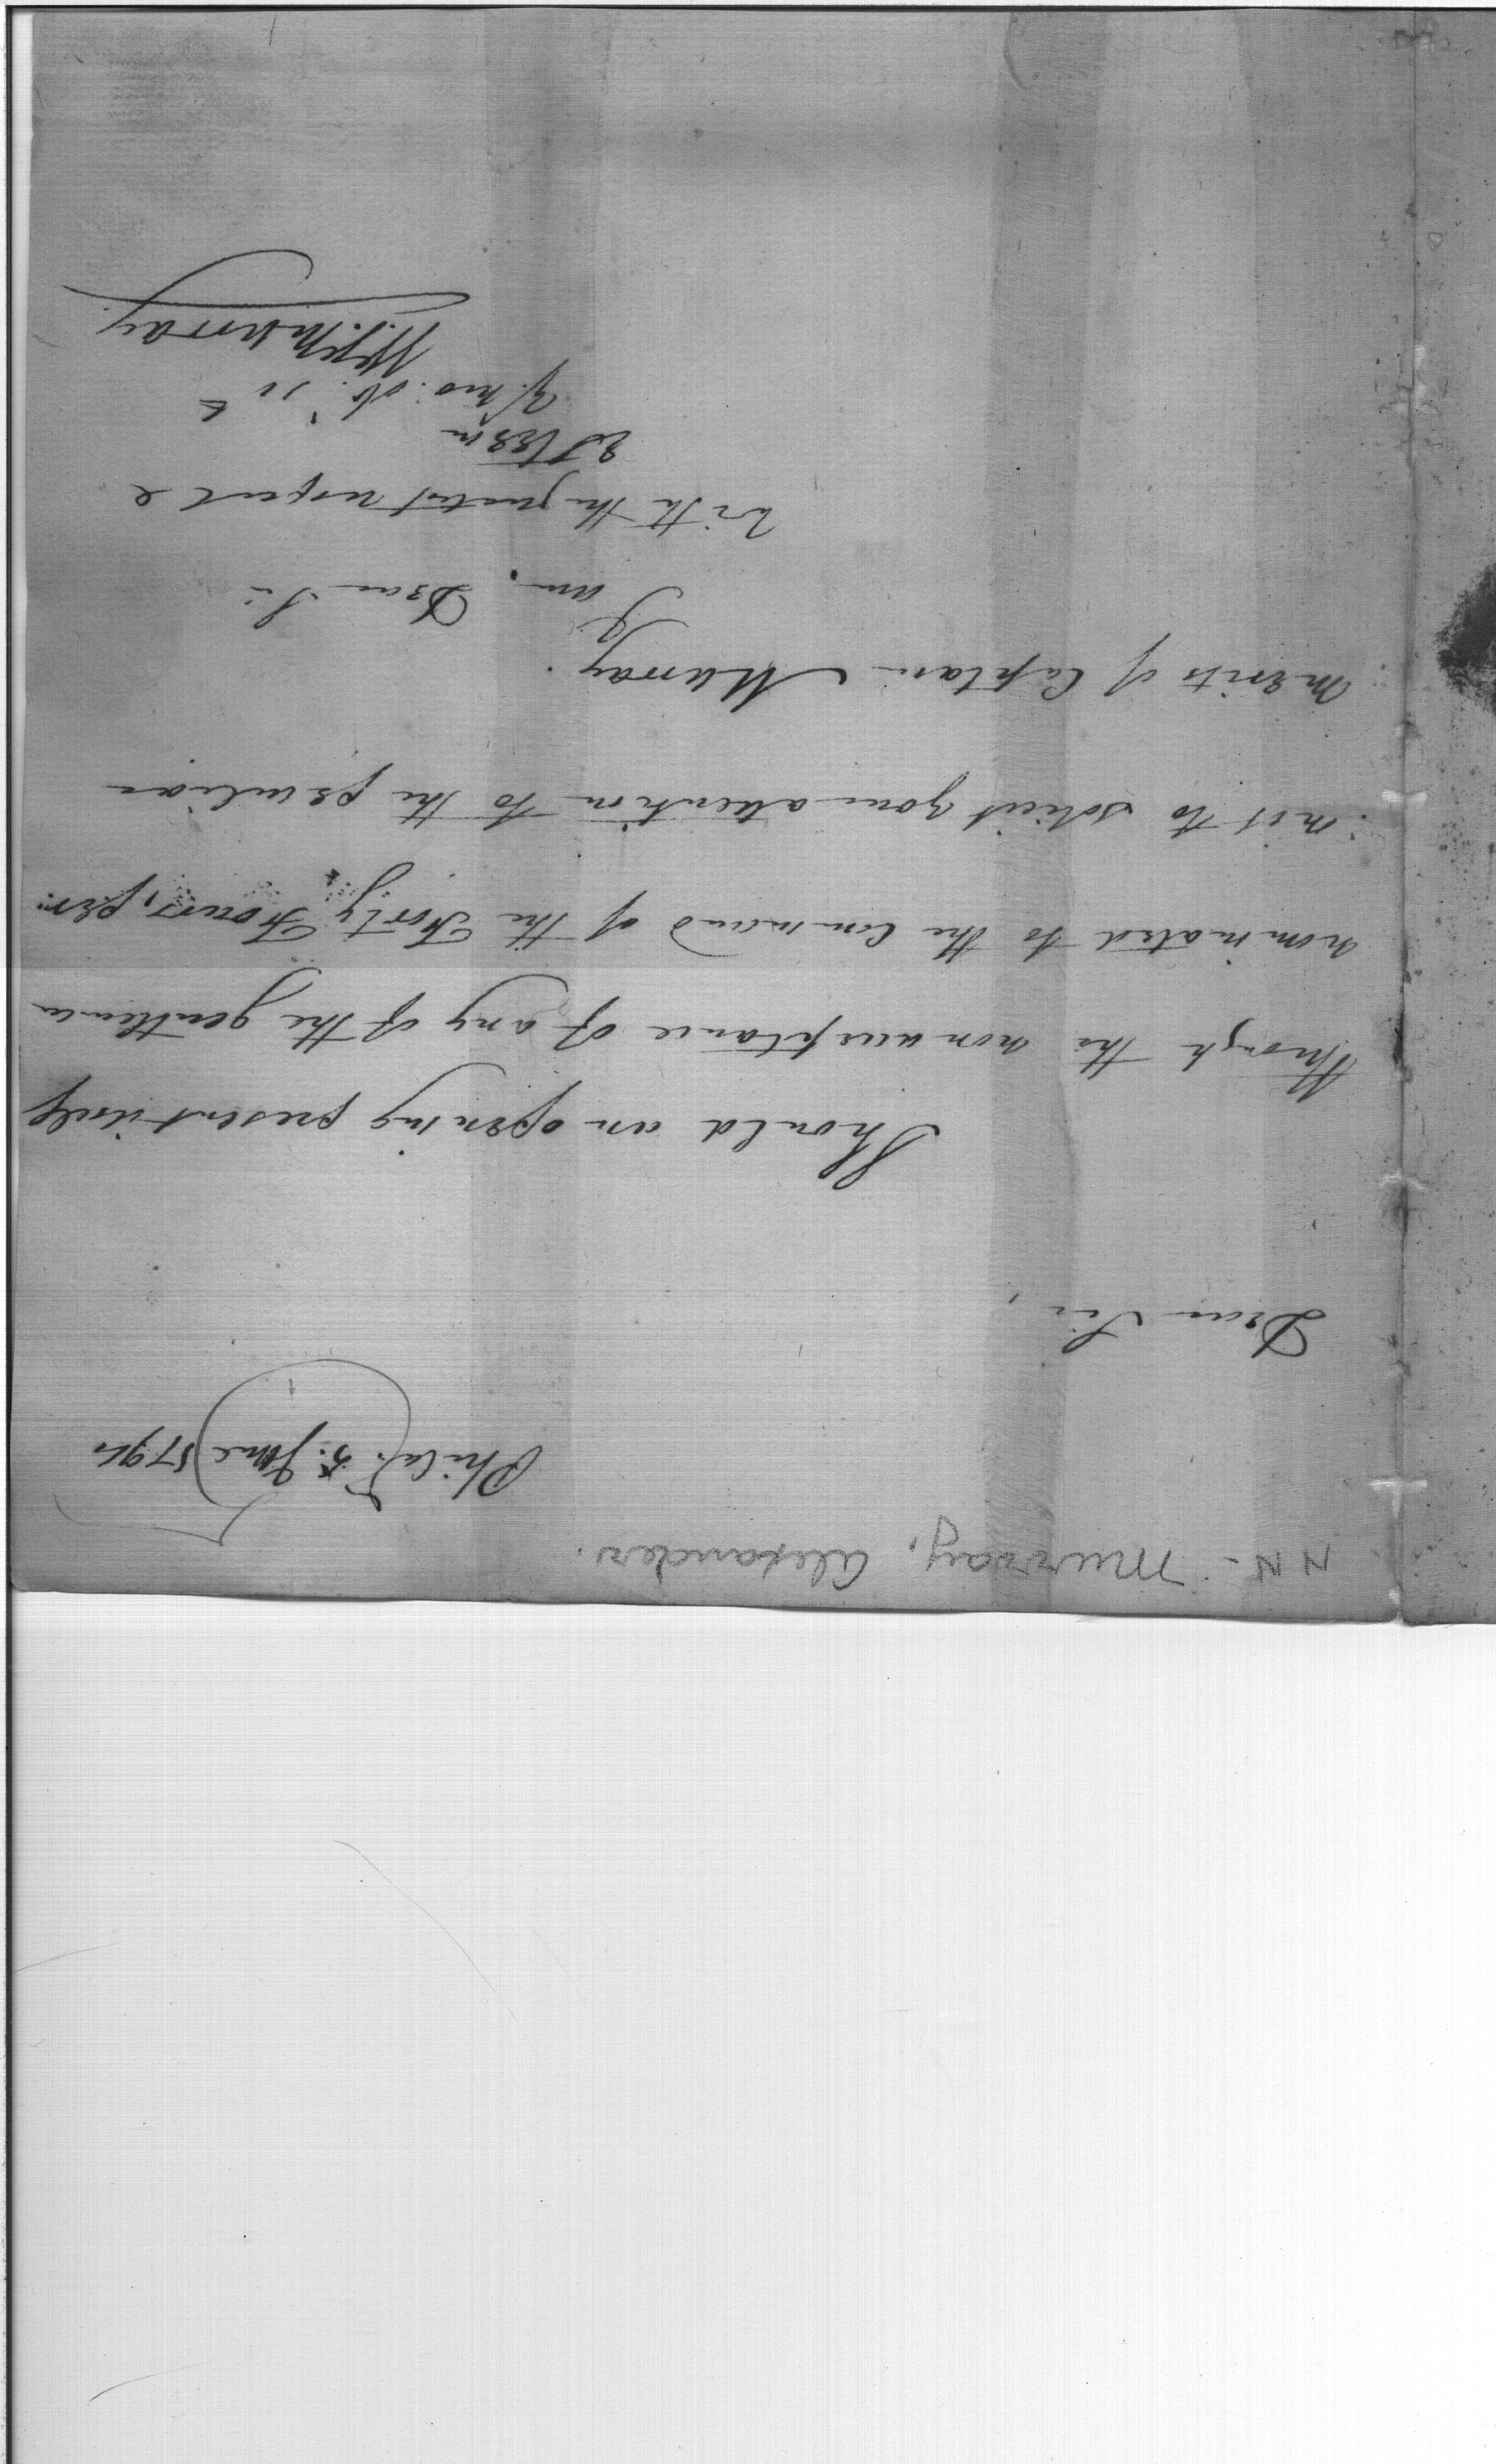 NN - Murray, Alexander.
Philad. 5. June 1794
Dear Sir,
Should an opening present itself
through the non acceptance of any of the gentlemen
nominated to the Command of the Forty Fours, per:
:mit to solicit your attention to the peculiar
merits of Captain Murray.
I am, Dear Sir
with the greatest respect &
esteem
Y. mo. ob. st
W. V. Murray